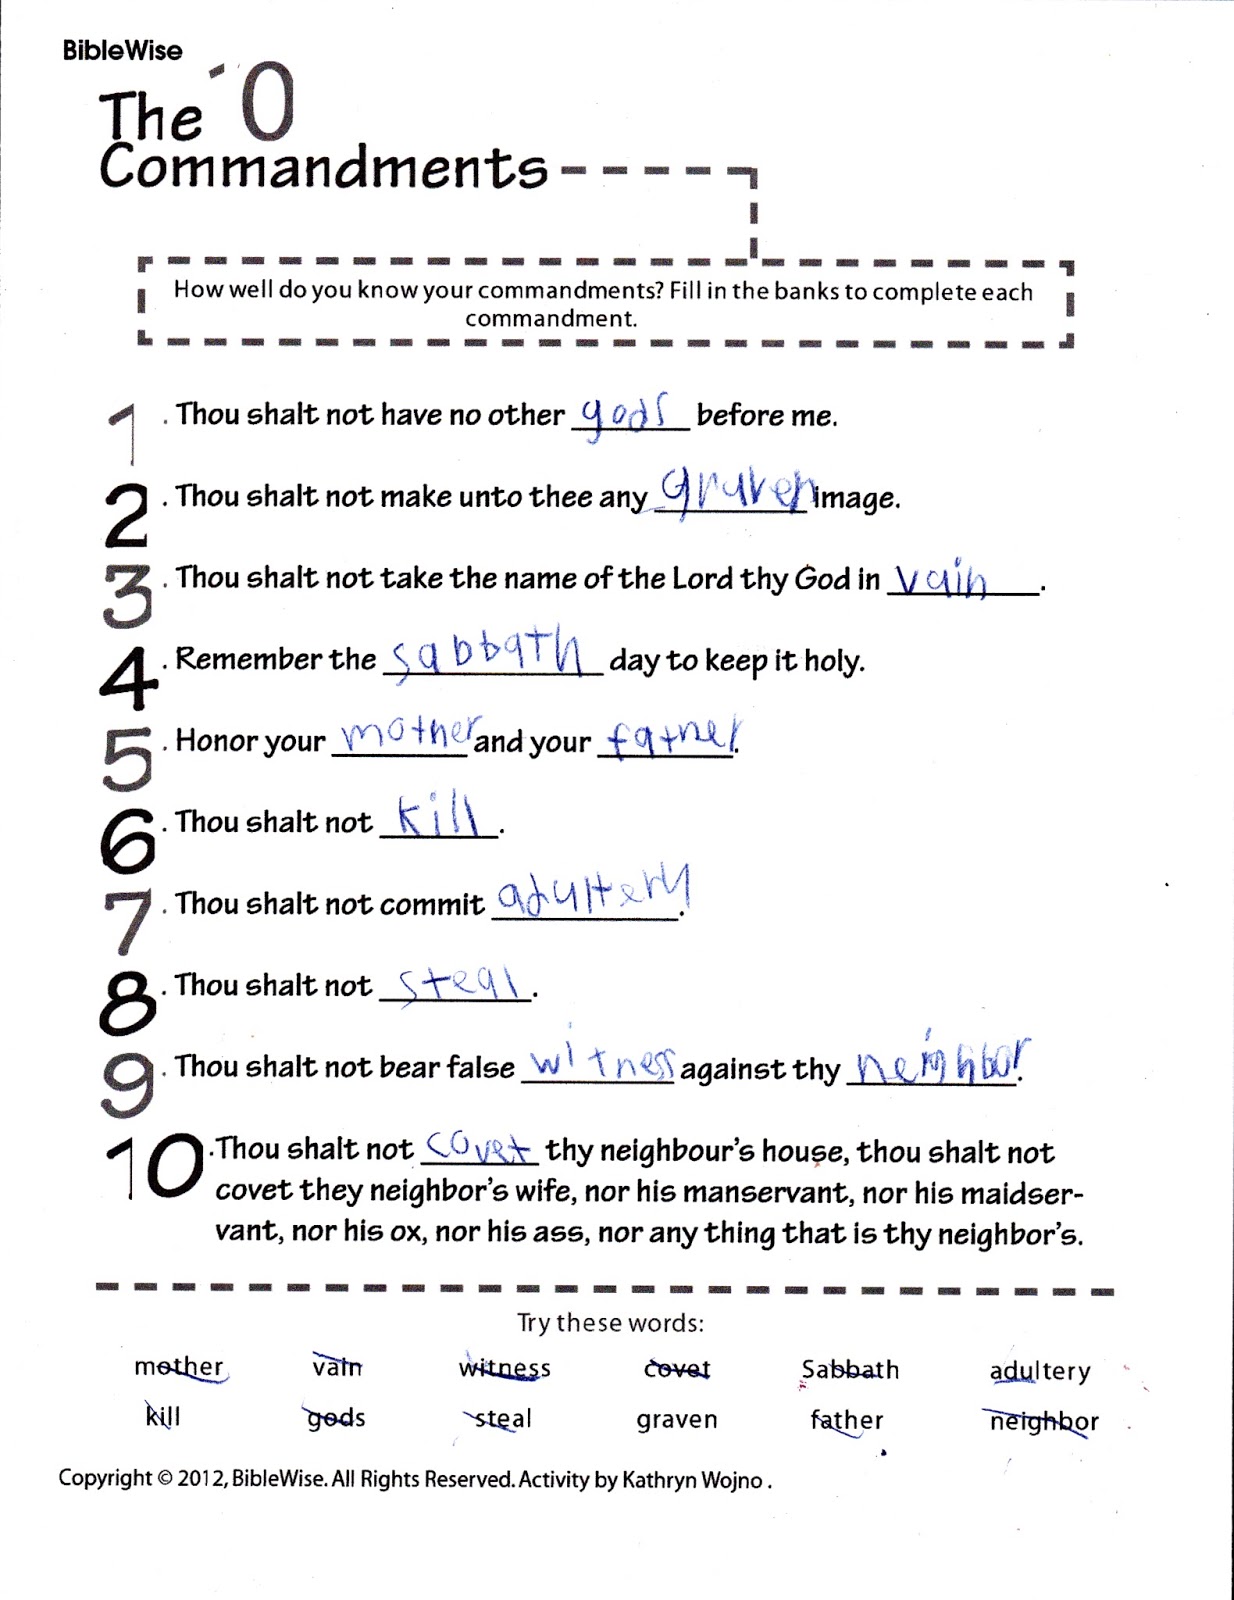 BibleWise
The 10
Commandments
How well do you know your commandments? Fill in the banks to complete each
commandment.
1. Thou shalt not have no other gods before me.
2. Thou shalt not make unto thee any graven image.
3. Thou shalt not take the name of the Lord thy God in vain.
4. Remember the sabbath day to keep it holy.
5. Honor your mother and your father.
6. Thou shalt not kill.
7. Thou shalt not commit adultery.
8. Thou shalt not steal.
9. Thou shalt not bear false witness against thy neighbor.
10. Thou shalt not covet thy neighbour's house, thou shalt not
covet they neighbor's wife, nor his manservant, nor his maidser-
vant, nor his ox, nor his ass, nor any thing that is thy neighbor's.
Try these words:
mother vain witness covet Sabbath adultery
kill gods steal graven father neighbor
Copyright © 2012, BibleWise. All Rights Reserved. Activity by Kathryn Wojno .